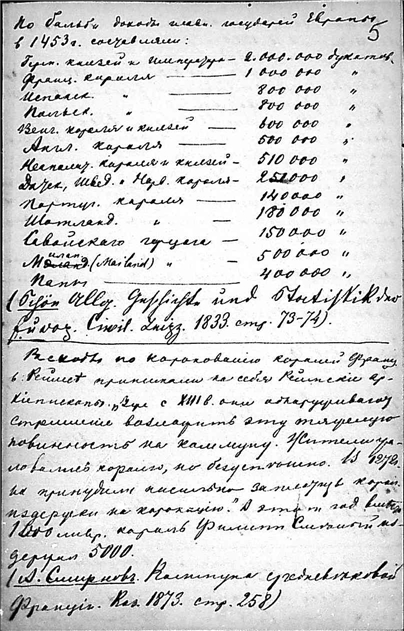 По Бальби доходы главн. государей Европы
в 1453 г. составляли:
Герм. князей и Императора - 2.000.000 дукатов.
Франц. короля — 1 000 000 "
Испанск. " — 800 000 "
Польск. " — 800 000 "
Венг. короля и князей — 600 000 "
Англ. короля — 500 000 "
Неаполит. короля и князей - 510 000 "
Датск., Швед. и Норв. короля -
Португ. короля — 140 000 "
Шотланд. " — 180 000 "
Савойского герцога — 150 000 "
Милан (Mailand) " — 500 000 "
Папы — 400 000 "
Allg. Geschichte und Statistik der
Civil. Leipz. 1833. стр. 73-74).
Расходы по коронованию королей Франц.
в Реймсе принимали на себя Реймские ар-
хиепископы. Уже с XIII в. они обнаруживают
стремление возложить эту тяжелую
повинность на коммуну. Жители
королю, но безуспешно. В
их принудили насильно заплатить
издержки на коронацию. В этот год вместо
ливр. король Филипп Смелый из-
держал 5000.
(А. Смирновъ. Коммуна средневековой
Франции. Каз. 1873. стр. 258)